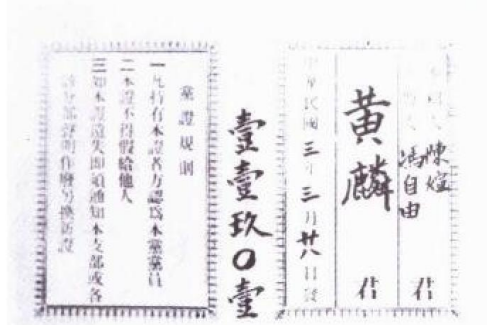 陳煊
馮自由 君
黃麟 君
中華民國三年三月廿八日發
壹壹玖〇壹
黨證規則
一凡持有本證者方認爲本黨黨員
二本證不得假給他人
三如本證遺失即須通知本支部或各
分部聲明作廢另換新證